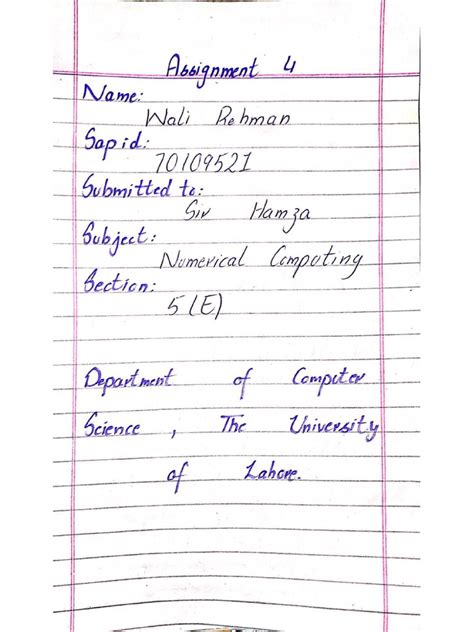 Assignment 4
Name:
Wali Rehman
Sap id:
70109521
Submitted to:
Sir Hamza
Subject:
Numerical Computing
Section:
5(E)
Department of Computer
Science, The University
of Lahore.